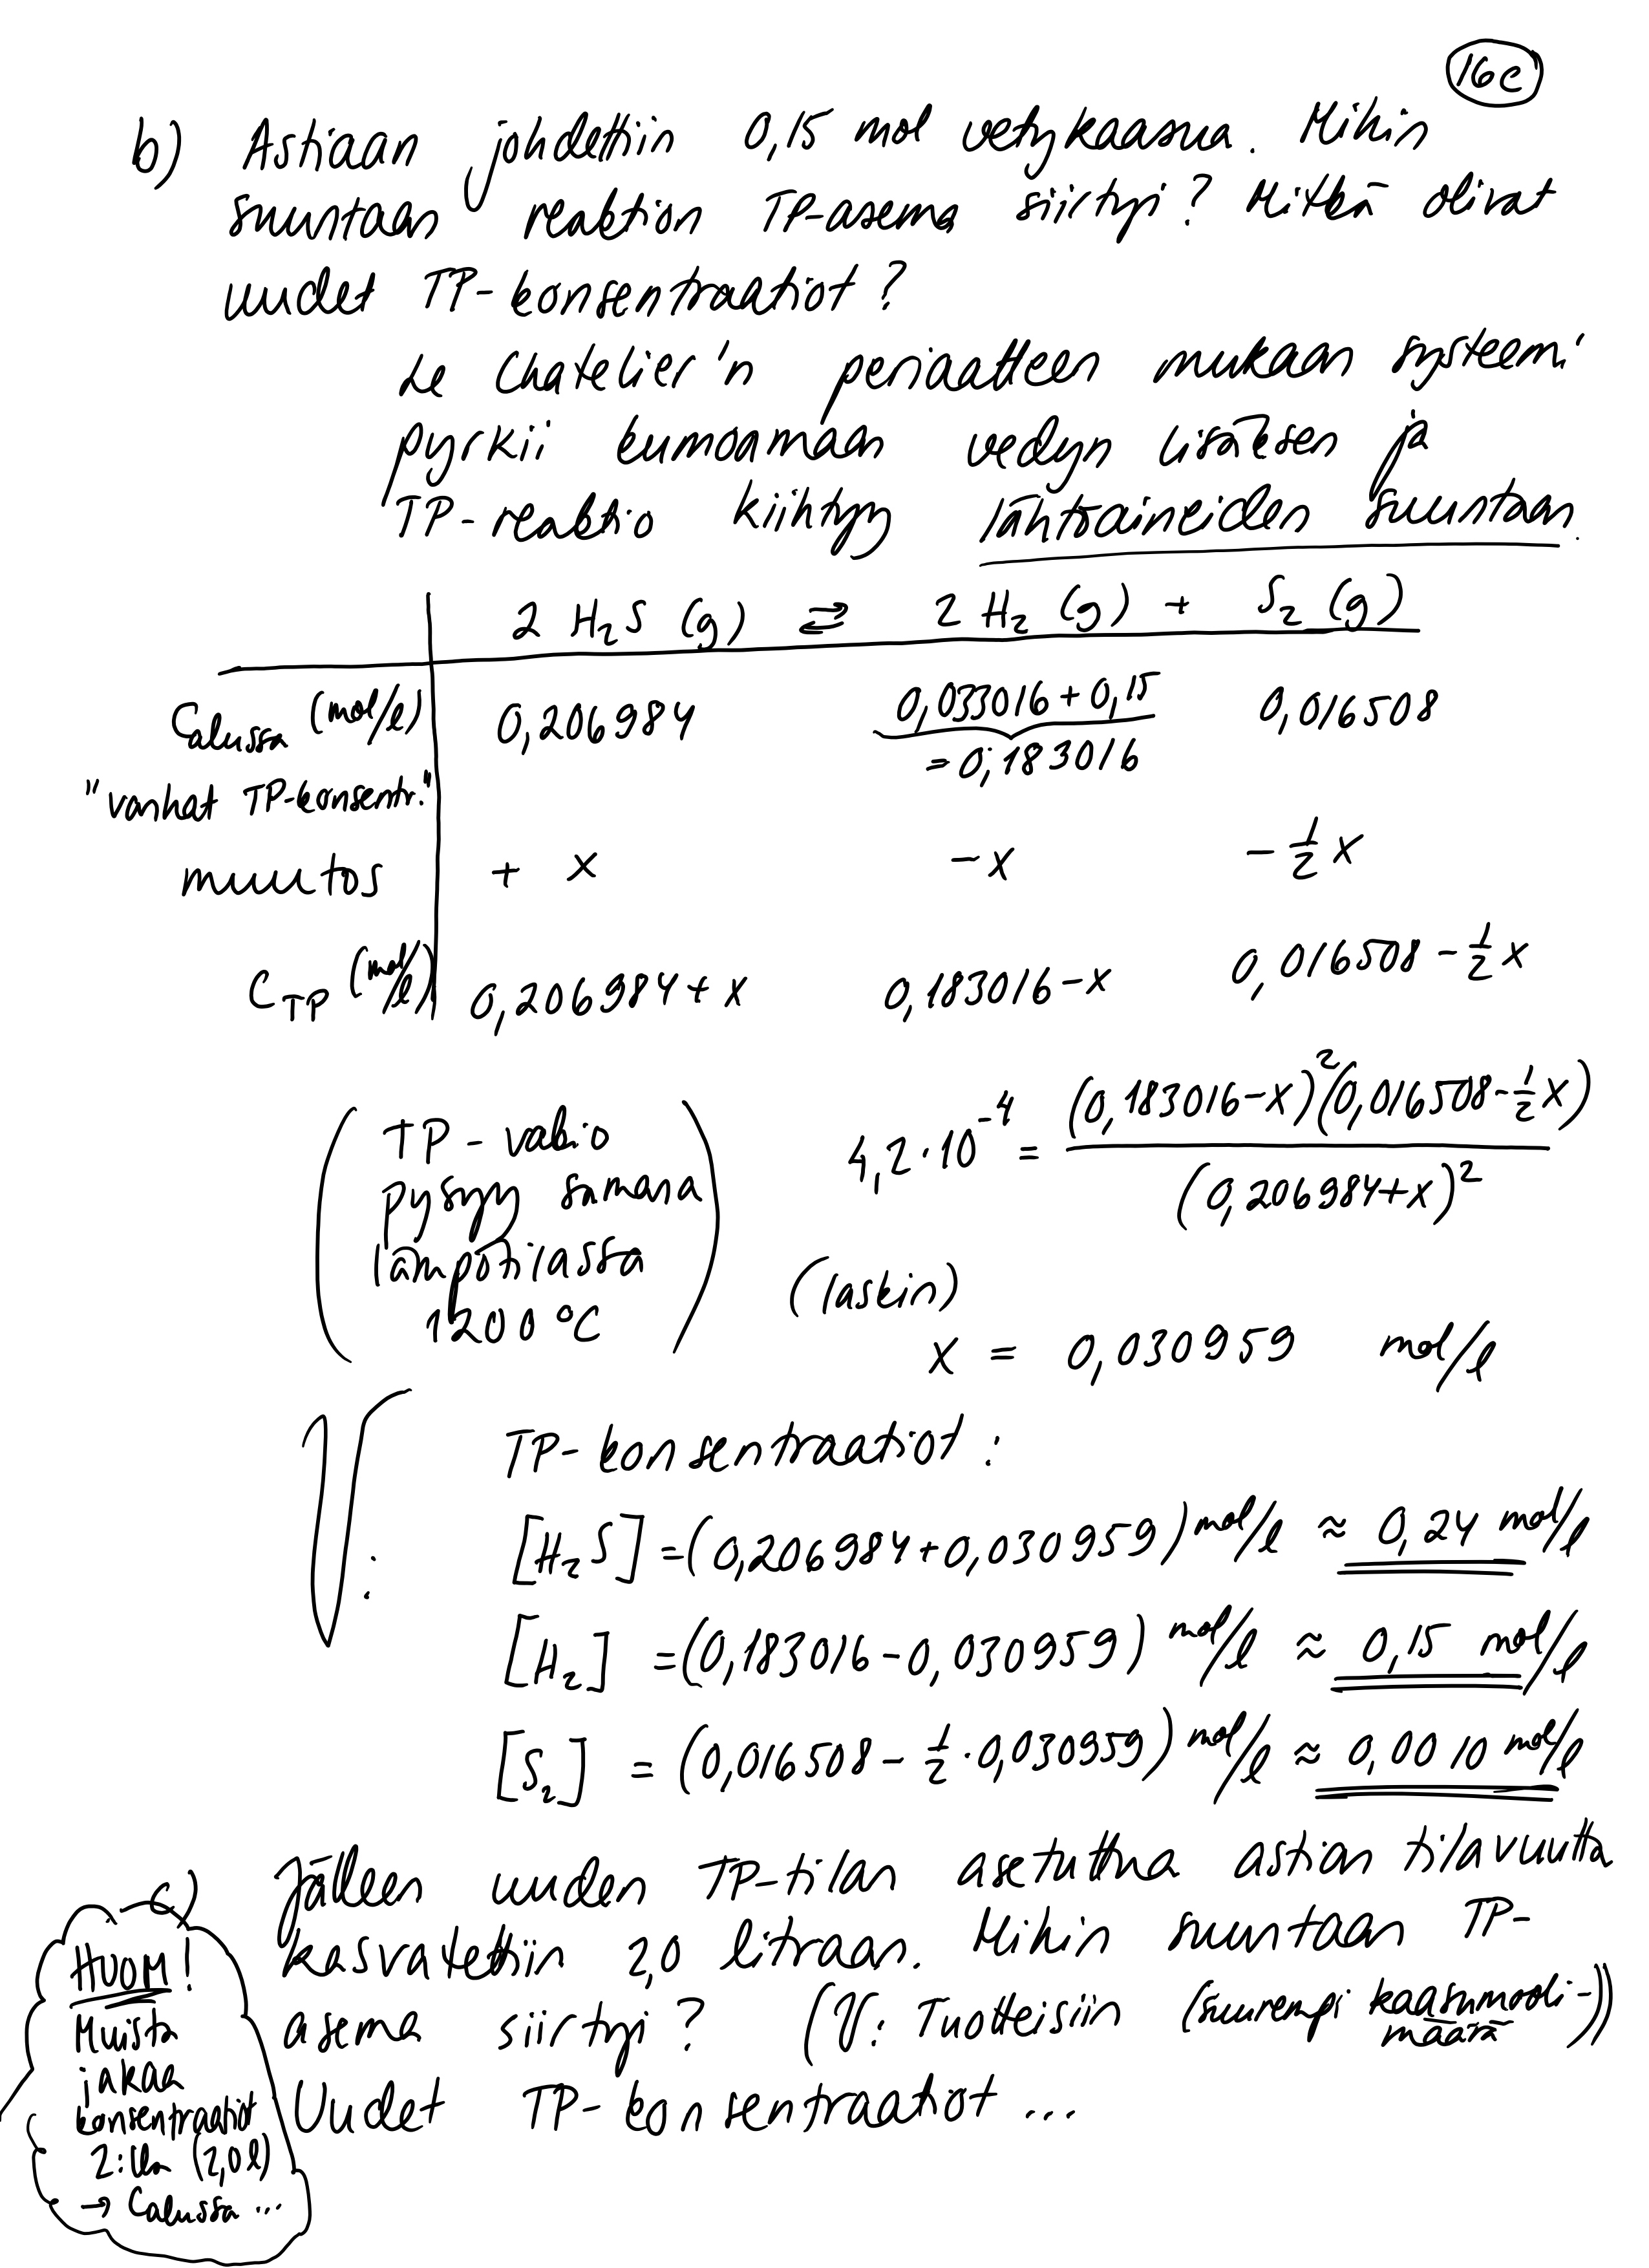 16c
b) Astiaan johdettiin 0,15 mol vetykaasua. Mihin
suuntaan reaktion TP-asema siirtyi? Mitkä olivat
uudet TP-konsentraatiot?
Le Chatelier'n periaatteen mukaan systeemi
pyrkii kumoamaan vedyn lisäksen ja
TP-reaktio kiihtyy lähtöaineiden suuntaan.
2 H₂S (g) ⇄ 2 H₂ (g) + S₂ (g)
Calussa (mol/l) 0,206984 0,033016 + 0,15 0,016508
= 0,183016
"vanhat TP-konsentr."
muutos + x - x - ½ x
C_TP (mol/l) 0,206984 + x 0,183016 - x 0,016508 - ½ x
(TP-vakio pysyy samana lämpötilassa 1200 °C)
4,2 · 10⁻⁴ = (0,183016 - x)² (0,016508 - ½ x) / (0,206984 + x)²
(laskin)
x = 0,030959 mol/l
V: TP-konsentraatiot:
[H₂S] = (0,206984 + 0,030959) mol/l ≈ 0,24 mol/l
[H₂] = (0,183016 - 0,030959) mol/l ≈ 0,15 mol/l
[S₂] = (0,016508 - ½ · 0,030959) mol/l ≈ 0,0010 mol/l
c) Jälleen uuden TP-tilan asetuttua astian tilavuutta
kasvatettiin 2,0 litraan. Mihin suuntaan TP-
asema siirtyi? (V: Tuotteisiin (suurempi kaasumooli-
määrä))
Uudet TP-konsentraatiot ...
HUOM!
Muista
jakaa
konsentraatiot
2:lla (2,0 l)
→ Calussa ...